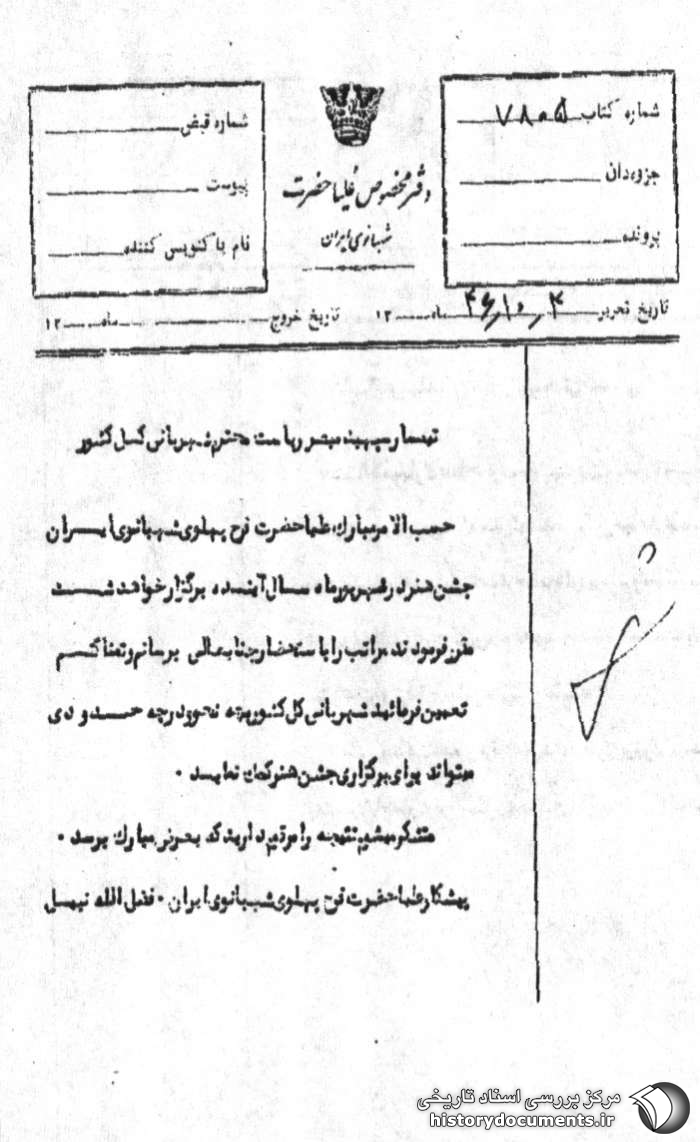 شماره کتاب ۷۸۰۵
جزوه‌دان
پرونده
دفتر مخصوص علیاحضرت
شهبانوی ایران
شماره قبض
پیوست
نام پاکنویس کننده
تاریخ تحریر ۴۶/۱۰/۳ ماه ۱۳
تاریخ خروج ماه ۱۳
تیمسار سپهبد مبصر ریاست محترم شهربانی کل کشور
حسب الامر مبارک علیاحضرت فرح پهلوی شهبانوی ایران
جشن هنر در شهریور ماه سال آینده برگزار خواهد شد
مقرر فرمودند مراتب را با استحضار جنابعالی برسانم و تمنا کنم
تعیین فرمائید شهربانی کل کشور بچه نحو و درجه حدودی
میتواند برای برگزاری جشن هنر کمک نماید .
متشکر میشوم نتیجه را مرقوم دارید که بعرض مبارک برسد .
پیشکار علیاحضرت فرح پهلوی شهبانوی ایران . فضل الله نبیل
مرکز بررسی اسناد تاریخی
historydocuments.ir